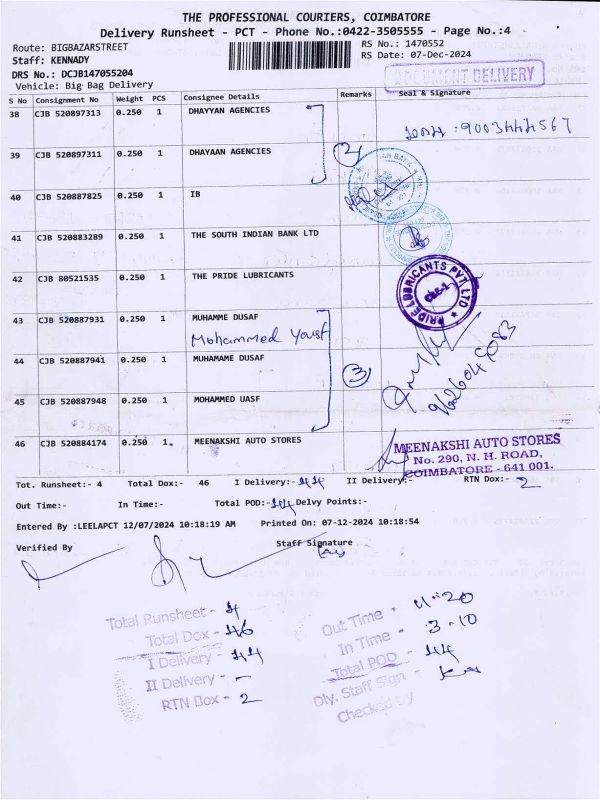 THE PROFESSIONAL COURIERS, COIMBATORE
Delivery Runsheet - PCT - Phone No.:0422-3505555 - Page No.:4
Route: BIGBAZARSTREET
RS No.: 1470552
Staff: KENNADY
RS Date: 07-Dec-2024
DRS No.: DCJB147055204
DOCUMENT DELIVERY
Vehicle: Big Bag Delivery
S No Consignment No Weight PCS Consignee Details Remarks Seal & Signature
38 CJB 520897313 0.250 1 DHAYYAN AGENCIES
9003444567
39 CJB 520897311 0.250 1 DHAYAAN AGENCIES
2
40 CJB 520887825 0.250 1 IB
41 CJB 520883289 0.250 1 THE SOUTH INDIAN BANK LTD
42 CJB 80521535 0.250 1 THE PRIDE LUBRICANTS
PRIDE LUBRICANTS PVT LTD
CBE-1
43 CJB 520887931 0.250 1 MUHAMME DUSAF
Mohammed Yousf
44 CJB 520887941 0.250 1 MUHAMAME DUSAF
3
45 CJB 520887948 0.250 1 MOHOMMED UASF
46 CJB 520884174 0.250 1 MEENAKSHI AUTO STORES
MEENAKSHI AUTO STORES
No. 290, N. H. ROAD,
COIMBATORE - 641 001.
Tot. Runsheet:- 4 Total Dox:- 46 I Delivery:- 44 II Delivery:- RTN Dox:- 2
Out Time:- In Time:- Total POD:- 44 Delvy Points:-
Entered By :LEELAPCT 12/07/2024 10:18:19 AM Printed On: 07-12-2024 10:18:54
Verified By Staff Signature
Total Runsheet - 4
Total Dox - 46
I Delivery - 44
II Delivery - -
RTN Box - 2
Out Time - 11-20
In Time - 3-10
Total POD - 44
Dly. Staff Sign -
Checked by